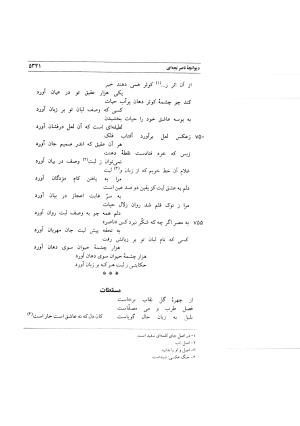 دیوانچهٔ ناصر بجه‌ای ۵۳۴۱
از آن اثر ز...(۱) کوثر همی دهند خبر
یکی هزار عقیق تو در عیان آورد
کند چو چشمهٔ کوثر دهان پرآب حیات
کسی که وصف لبان تو بر زبان آورد
به بوسه عاشق خود را حیات بخشیدن
لطیفه‌ای است که آن لعل درفشان آورد
۷۵۰ زعکس لعل برآورد آفتاب فلک
هر آن عقیق که اندر صمیم جان آورد
زبس که خرد فتادست نقطهٔ دهنت
نمی‌توان ز لبت(۲) وصف در بیان آورد
غلام آن خط خوبم که از زبان و(۳) لبت
مرا به یافتن کام مژدگان آورد
دلم به عشق لبت کز یقین دو صد عین است
به سر غایت اعجاز در بیان آورد
مرا ز نوک قلم شد روان زلال حیات
دلم همه چو به وصف لبت روان آورد
۷۵۵ به مصر اگر چه که شکر نبرد کس
به تحفه پیش لبت جان مهربان آورد
کسی که نام لبان تو بر زبانش رفت
هزار چشمهٔ حیوان سوی دهان آورد
هزار چشمهٔ حیوان سوی دهان آورد
حکایتش ز لبت هر که بر زبان آورد
* * *
مسمّطات
از چهرهٔ گل نقاب برخاست
فصل طرب و می مصفّاست
بلبل به زبان حال گویاست
کان دل که نه عاشق است خار است(۴)
۱- در اصل جای کلمه‌ای سفید است.
۲- اصل: لب
۳- اصل: و او را ندارد
۴- جنگ عکسی: